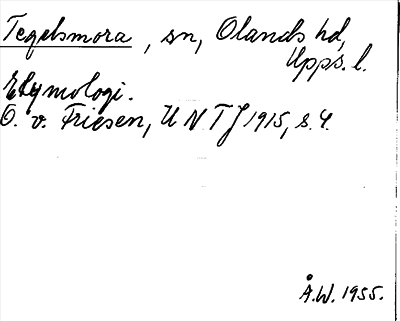 Tegelsmora, sn, Olands hd,
Upps. l.
Etymologi.
O. v. Friesen, UNTJ 1915, s. 4.
Å.W. 1955.